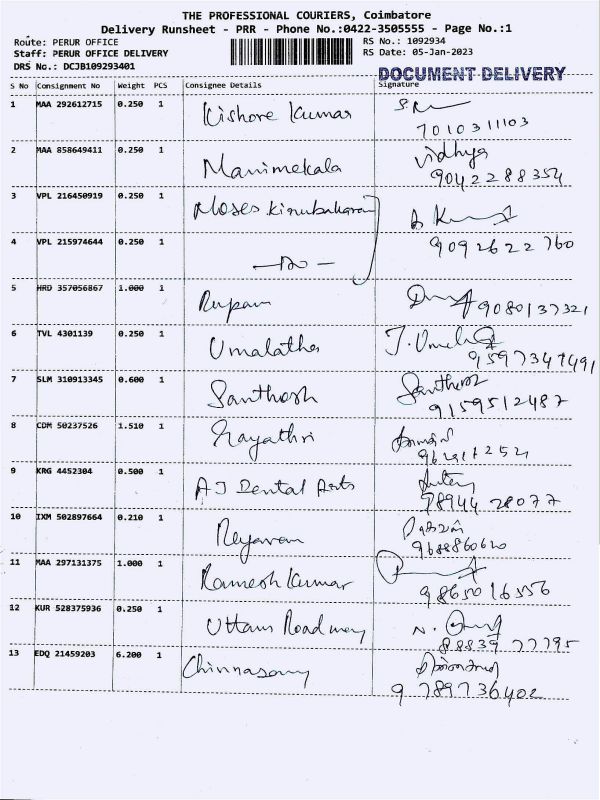 THE PROFESSIONAL COURIERS, Coimbatore
Delivery Runsheet - PRR - Phone No.:0422-3505555 - Page No.:1
Route: PERUR OFFICE RS No.: 1092934
Staff: PERUR OFFICE DELIVERY RS Date: 05-Jan-2023
DRS No.: DCJB109293401
DOCUMENT DELIVERY
S No Consignment No Weight PCS Consignee Details Signature
1 MAA 292612715 0.250 1 Kishore Kumar
7010311103
2 MAA 858649411 0.250 1 Manimekala Vidhya
9042288354
3 VPL 216450919 0.250 1 Moses Kirubakaran
4 VPL 215974644 0.250 1 9092622760
5 HRD 357056867 1.000 1 Rupam 9080137321
6 TVL 4301139 0.250 1 Umalatha J. Umelatha
9597347491
7 SLM 310913345 0.600 1 Santhosh Santhosh
9159512487
8 CDM 50237526 1.510 1 Gayathri
9 KRG 4452304 0.500 1 AJ Dental Arts
78944 28077
10 IXM 502897664 0.210 1
9688860620
11 MAA 297131375 1.000 1 Ramesh Kumar
9865016556
12 KUR 528375936 0.250 1 Uttam Roadway N.
88839 77795
13 EDQ 21459203 6.200 1 Chinnasamy
9789736402